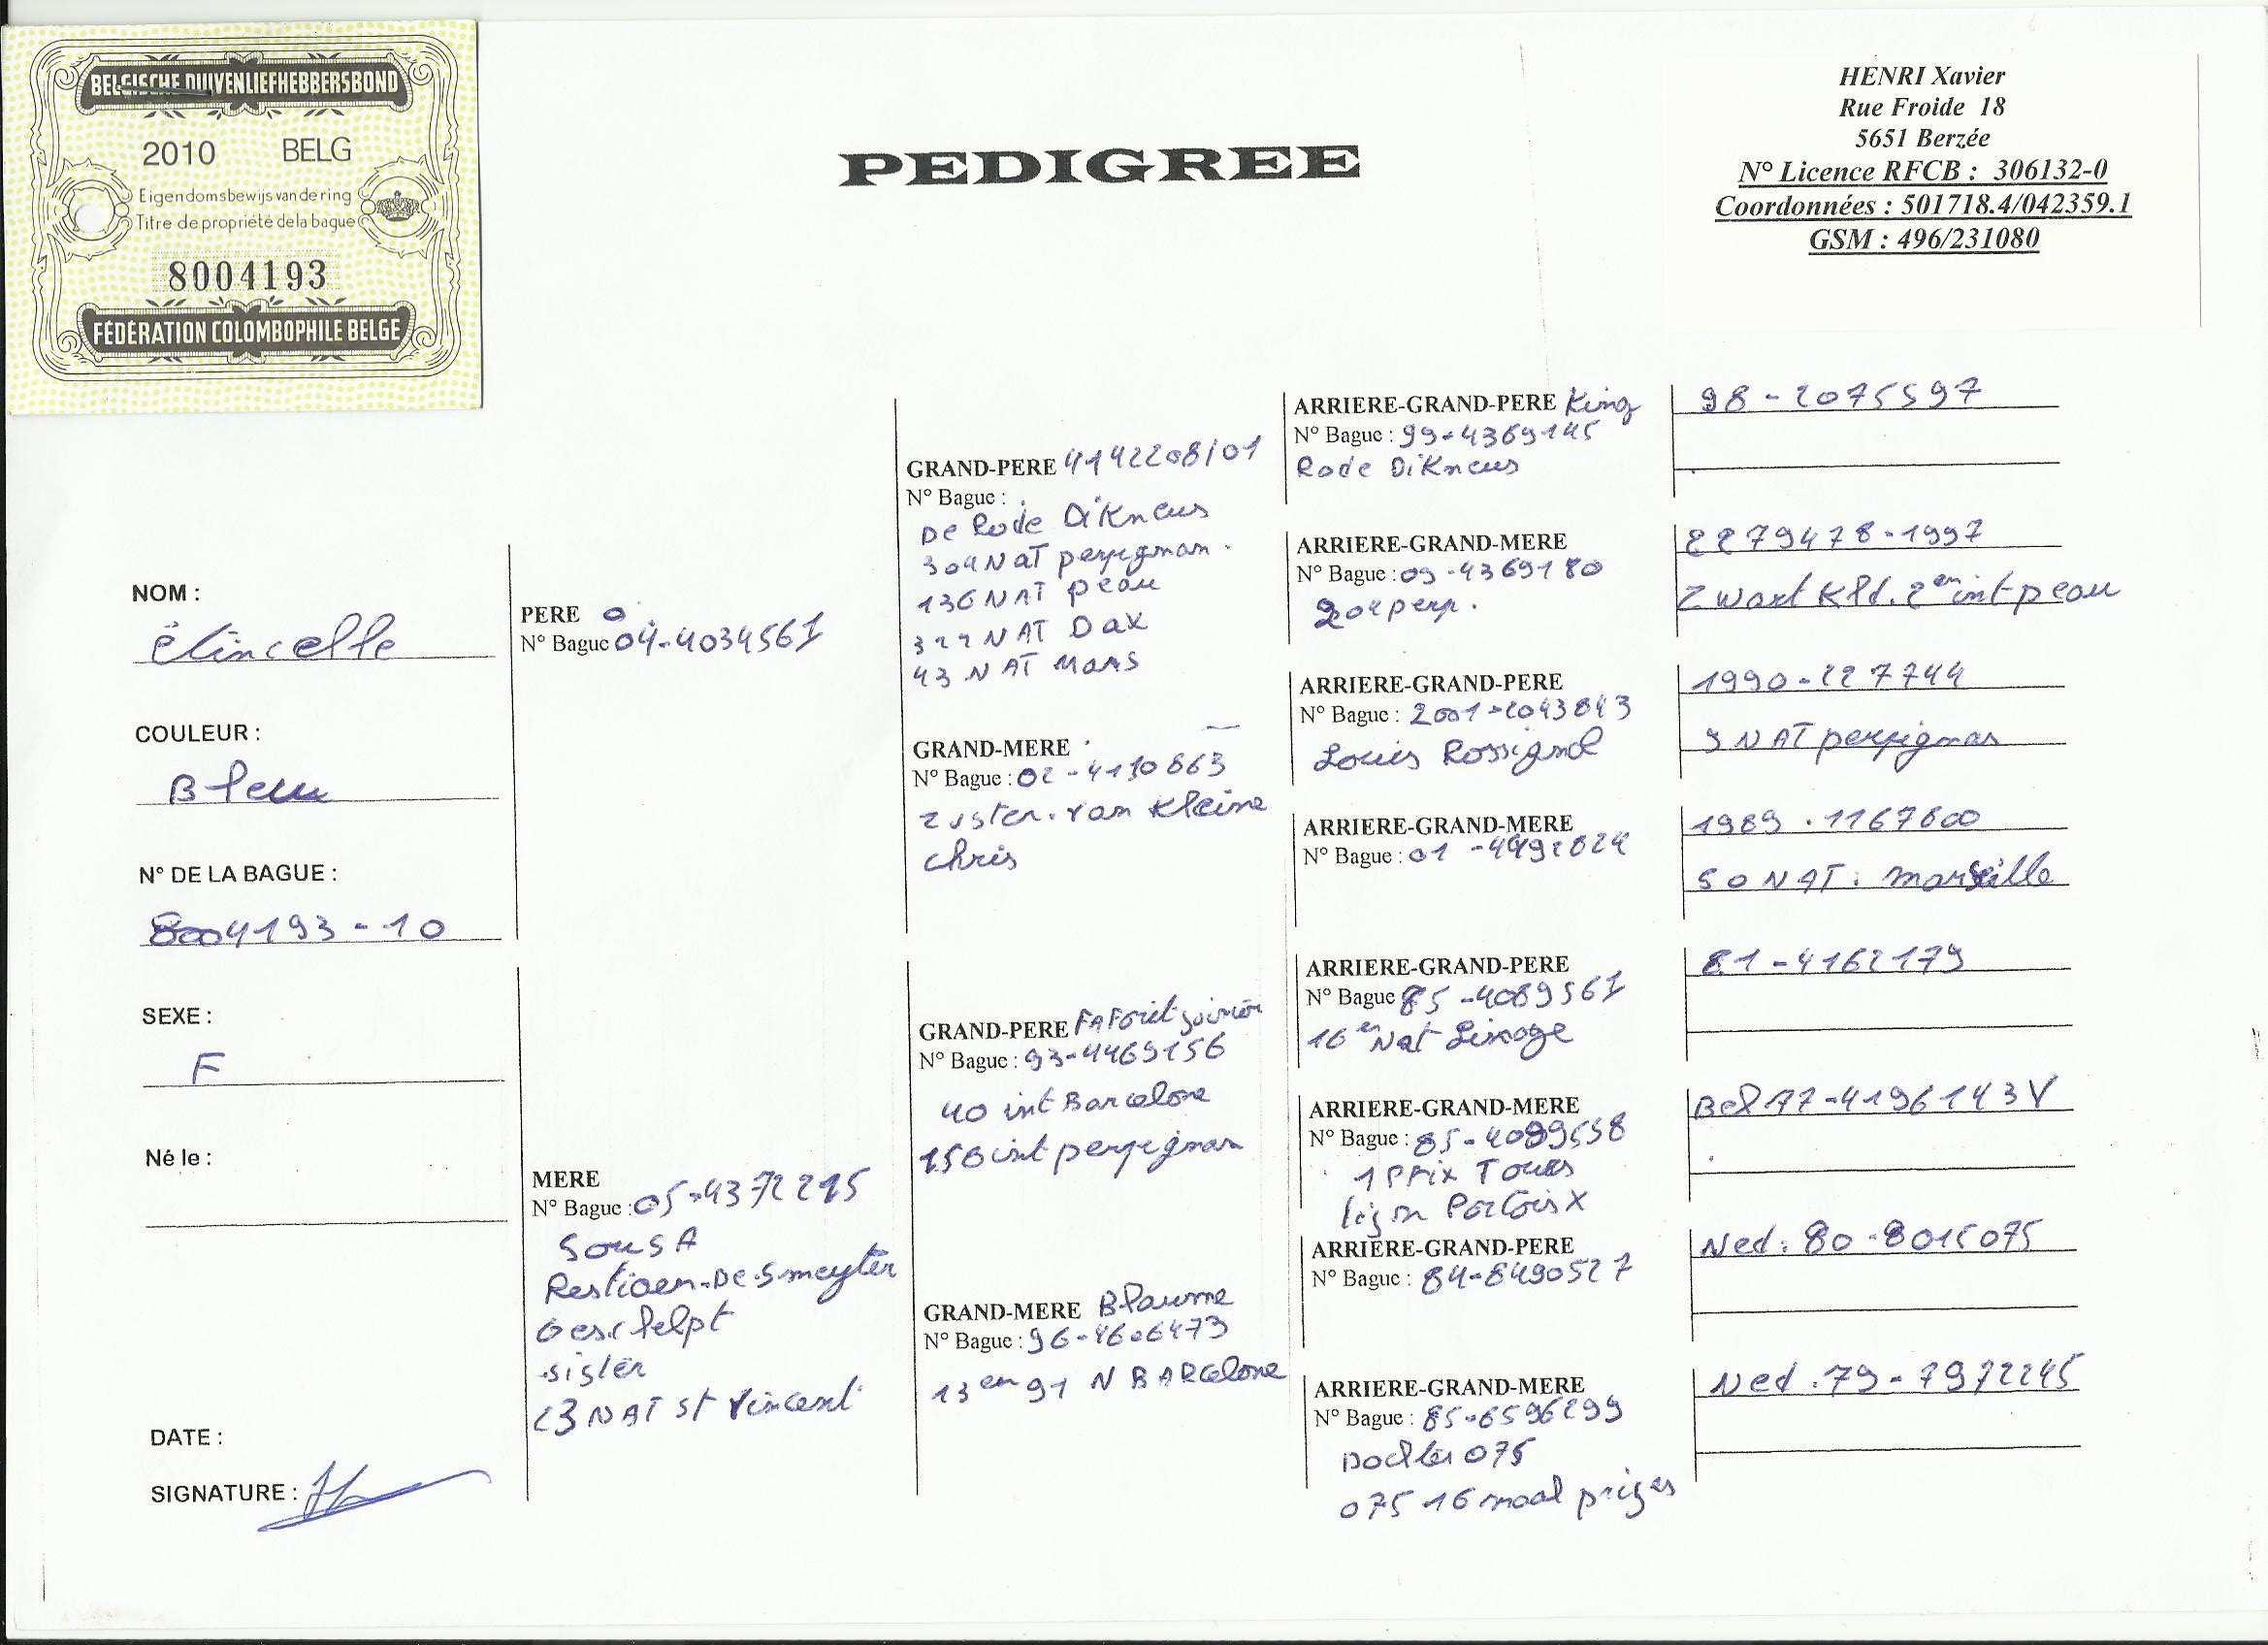 BELGISCHE DUIVENLIEFHEBBERSBOND
2010 BELG
Eigendomsbewijs van de ring
Titre de propriété de la bague
8004193
FÉDÉRATION COLOMBOPHILE BELGE
PEDIGREE
HENRI Xavier
Rue Froide 18
5651 Berzée
N° Licence RFCB : 306132-0
Coordonnées : 501718.4/042359.1
GSM : 496/231080
NOM :
étincelle
COULEUR :
Bleu
N° DE LA BAGUE :
8004193-10
SEXE :
F
Né le :
DATE :
SIGNATURE :
PERE
N° Bague 04-4034561
MERE
N° Bague : 05-4372215
SousA
Restiaen-De-Smeyter
Geschelpt
sister
23 NAT St Vincent
GRAND-PERE 4142208/01
N° Bague :
De Rode Dikneus
304 Nat perpignan.
136 NAT peau
322 NAT Dax
43 NAT Mans
GRAND-MERE
N° Bague : 02-4130863
zuster. van Kleine
chris
GRAND-PERE
N° Bague : 93-4469156
40 int Barcelone
150 int perpignan
GRAND-MERE Blauwe
N° Bague : 96-4606473
13 en 91 N BARCelone
ARRIERE-GRAND-PERE King
N° Bague : 99-4369145
Rode Dikneus
ARRIERE-GRAND-MERE
N° Bague : 09-4369180
204 perp.
ARRIERE-GRAND-PERE
N° Bague : 2001-2043843
Louis Rossignol
ARRIERE-GRAND-MERE
N° Bague : 01-4492824
ARRIERE-GRAND-PERE
N° Bague 85-4089561
16er Nat Limoge
ARRIERE-GRAND-MERE
N° Bague : 85-4089558
1 Prix Tours
lign PortoisX
ARRIERE-GRAND-PERE
N° Bague : 84-8490527
ARRIERE-GRAND-MERE
N° Bague : 85-6596299
Dochter 075
075 16 maal prijzen
98-2075597
2279478-1997
Zwart Kld. 2en int-peau
1990-227744
9 NAT perpignan
1989.1167800
50 NAT. marseille
81-4162179
Bel 77-4196143V
Ned: 80-8015075
Ned.79-7972245